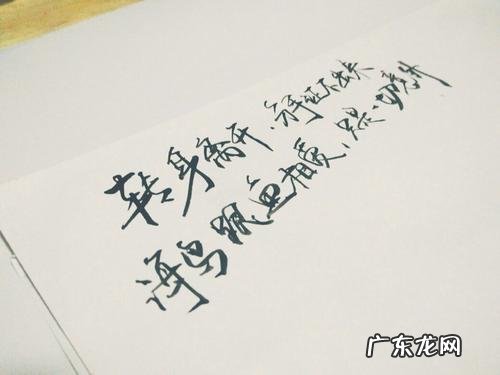 转身离开,分手说不出来
海鸟跟鱼相爱,只是一场意外
广东龙网